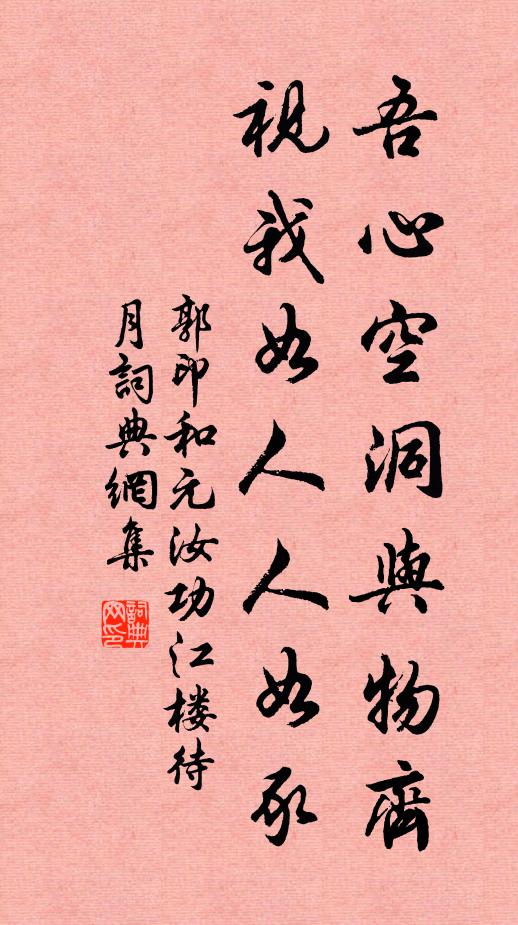 吾心空洞與物齊
視我如人人如我
郭印和元汝功江楼待
月詞典網集
詞典
网印